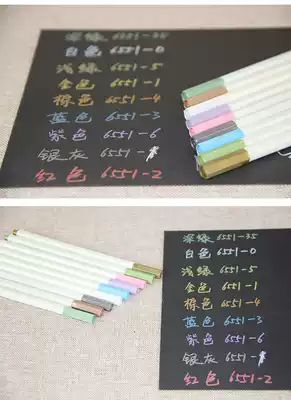 深綠 6551-35
白色 6551-0
浅緑 6551-5
金色 6551-1
棕色 6551-4
蓝色 6551-3
紫色 6551-6
银灰 6551-
红色 6551-2
深綠 6551-35
白色 6551-0
浅緑 6551-5
金色 6551-1
棕色 6551-4
蓝色 6551-3
紫色 6551-6
银灰 6551-
红色 6551-2